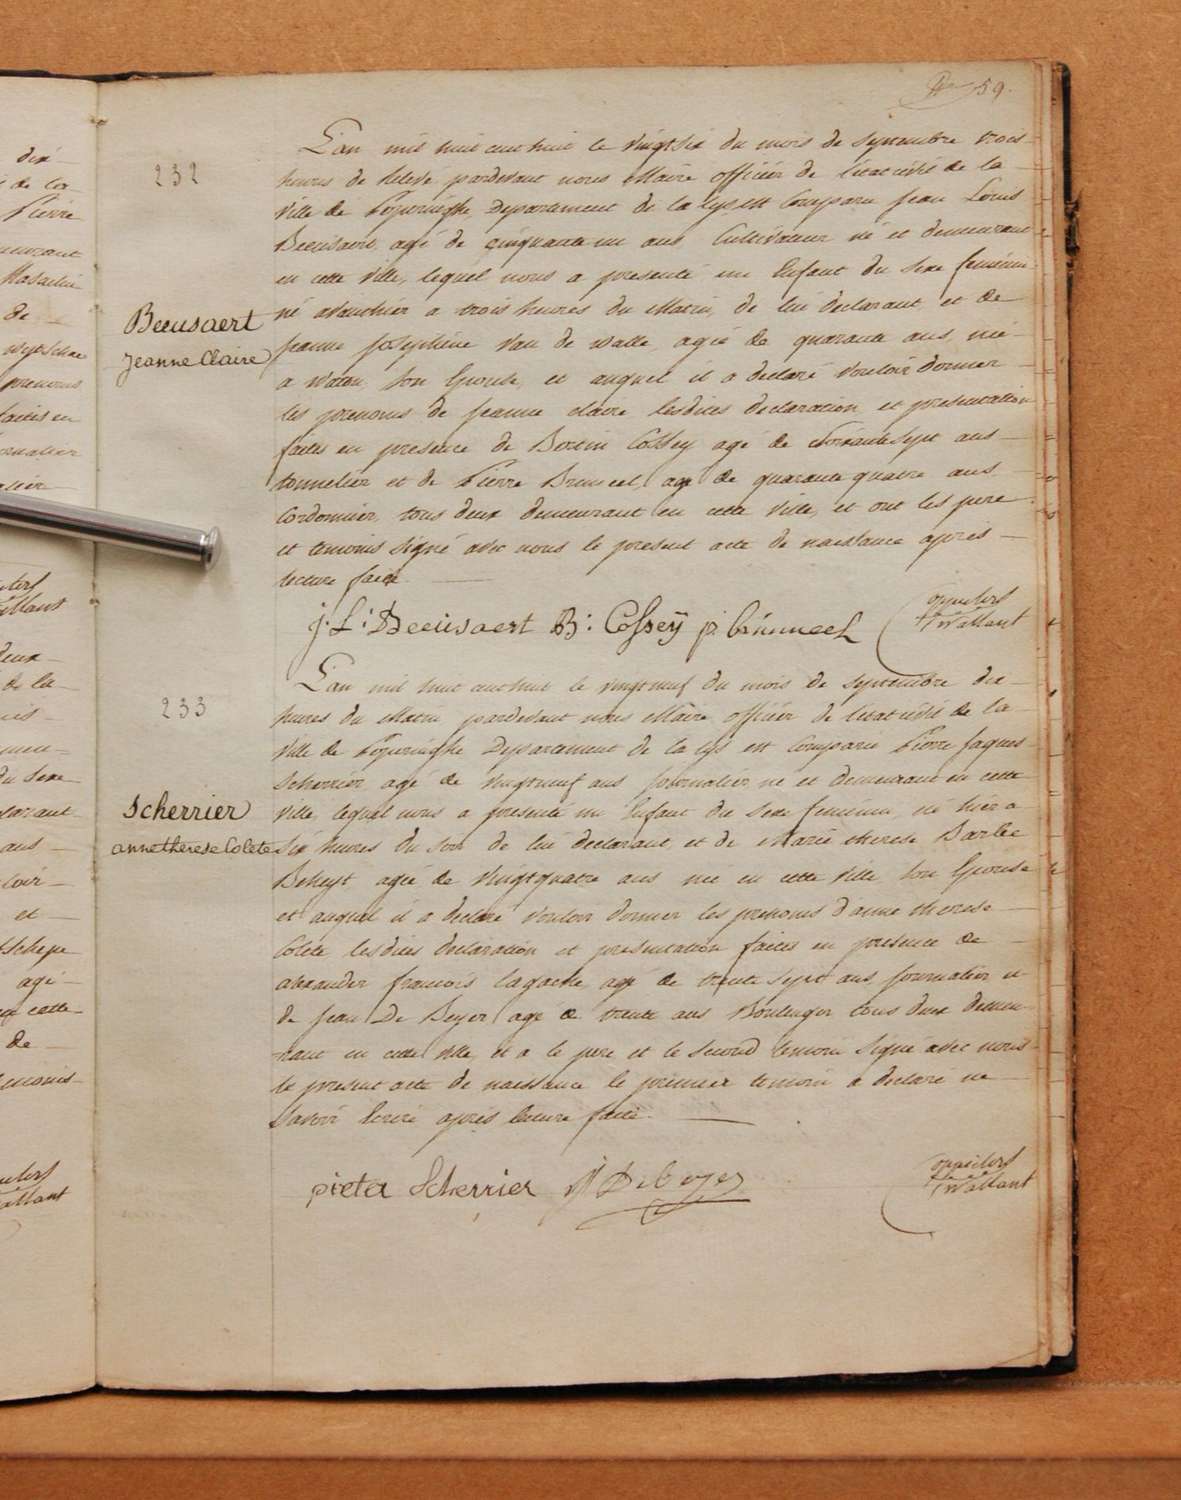 59.
232
L'an mil huit cent huit le vingt six du mois de septembre trois
heures de relevé pardevant nous Maire officier de l'état civil de la
ville de Poperinghe Departement de la Lys est Comparu Jean Louis
Beeusaert agé de cinquante un ans Cultivateur né et demeurant
en cette ville, lequel nous a presenté un Enfant du Sexe feminin
Beeusaert
Jeanne Claire
né avanthier a trois heures du Matin, de lui declarant et de
Jeanne Josephine Van de Walle, agée de quarante ans, née
a Watou son Epouse, et auquel il a declaré vouloir donner
les prenoms de Jeanne Claire lesdites declaration et presentation
faites en presence de Cossey agé de sept ans
tonnelier et de Pierre agé de quarante quatre ans
Cordonnier, tous deux demeurant en cette ville, et ont les pere
et temoins signé avec nous le present acte de naissance après
lecture faite.
J: L: Beeusaert B: Cossey p
Wallant
233
L'an mil huit cent huit le vingtneuf du mois de septembre dix
heures du Matin pardevant nous Maire officier de l'état civil de la
ville de Poperinghe Departement de la Lys est Comparu Pierre Jaques
Scherrier agé de vingtneuf ans journalier né et demeurant en cette
Scherrier
anne therese Colete
ville, lequel nous a presenté un Enfant du Sexe feminin, né hier a
six heures du soir de lui declarant et de Marie therese Barbe
agée de vingtquatre ans née en cette ville son Epouse
et auquel il a declaré vouloir donner les prenoms d'anne therese
Colete lesdites declaration et presentation faites en presence de
francois agé de trente sept ans, journalier et
de Jean De Beyer agé de trente ans Boulenger tous deux demeu
rant en cette ville, et a le pere et le second temoin signé avec nous
le present acte de naissance le premier temoin a declaré ne
savoir Ecrire après lecture faite.
pieter Scherrier J De beyer
Wallant